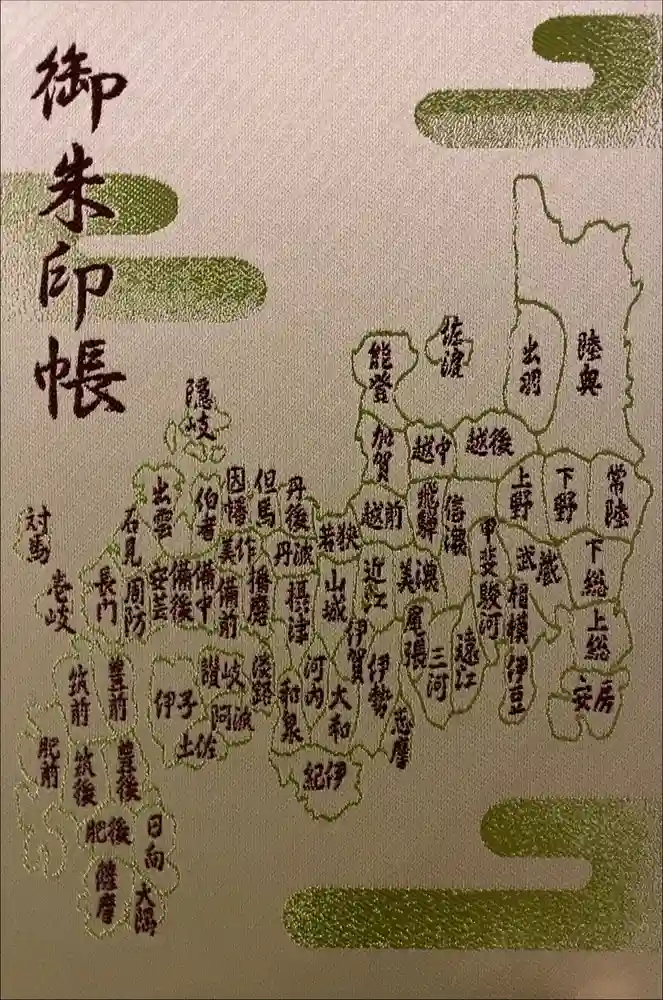 御朱印帳
陸奥
出羽
佐渡
能登
加賀
越中
越後
上野
下野
常陸
越前
飛騨
信濃
甲斐
武蔵
下総
上総
安房
相模
伊豆
駿河
遠江
三河
尾張
美濃
近江
若狭
山城
伊賀
伊勢
志摩
大和
紀伊
河内
和泉
摂津
丹後
丹波
但馬
因幡
伯耆
出雲
隠岐
石見
美作
播磨
備前
備中
備後
安芸
周防
長門
淡路
讃岐
阿波
伊予
土佐
対馬
壱岐
筑前
豊前
肥前
筑後
豊後
肥後
日向
薩摩
大隅